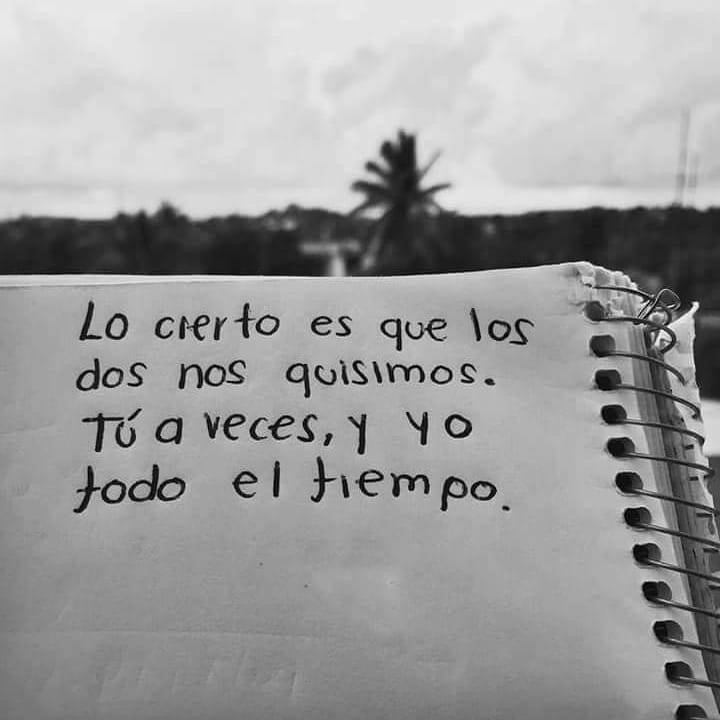 Lo cierto es que los
dos nos quisimos.
Tú a veces, y yo
todo el tiempo.